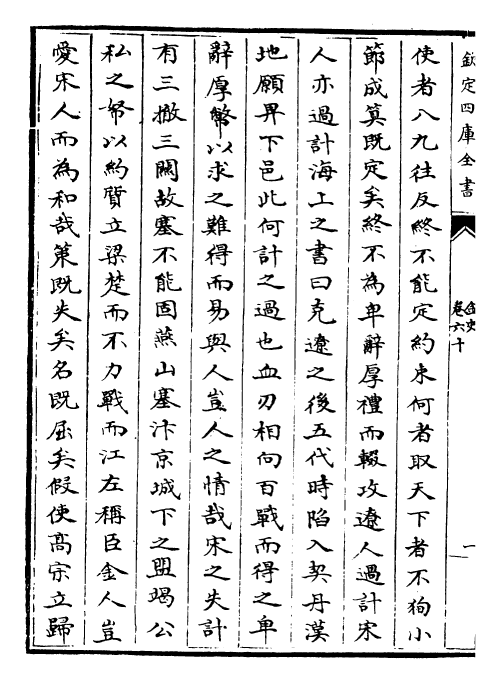 欽定四庫全書
金史
卷六十
一
使者八九往反終不能定約束何者取天下者不狥小
節成算既定矣終不為卑辭厚禮而輟攻遼人過計宋
人亦過計海上之書曰克遼之後五代時陷入契丹漢
地願畀下邑此何計之過也血刃相向百戰而得之卑
辭厚幣以求之難得而易與人豈人之情哉宋之失計
有三撤三關故塞不能固燕山塞汴京城下之盟竭公
私之帑以約質立梁楚而不力戰而江左稱臣金人豈
愛宋人而為和哉策既失矣名既屈矣假使髙宗立歸